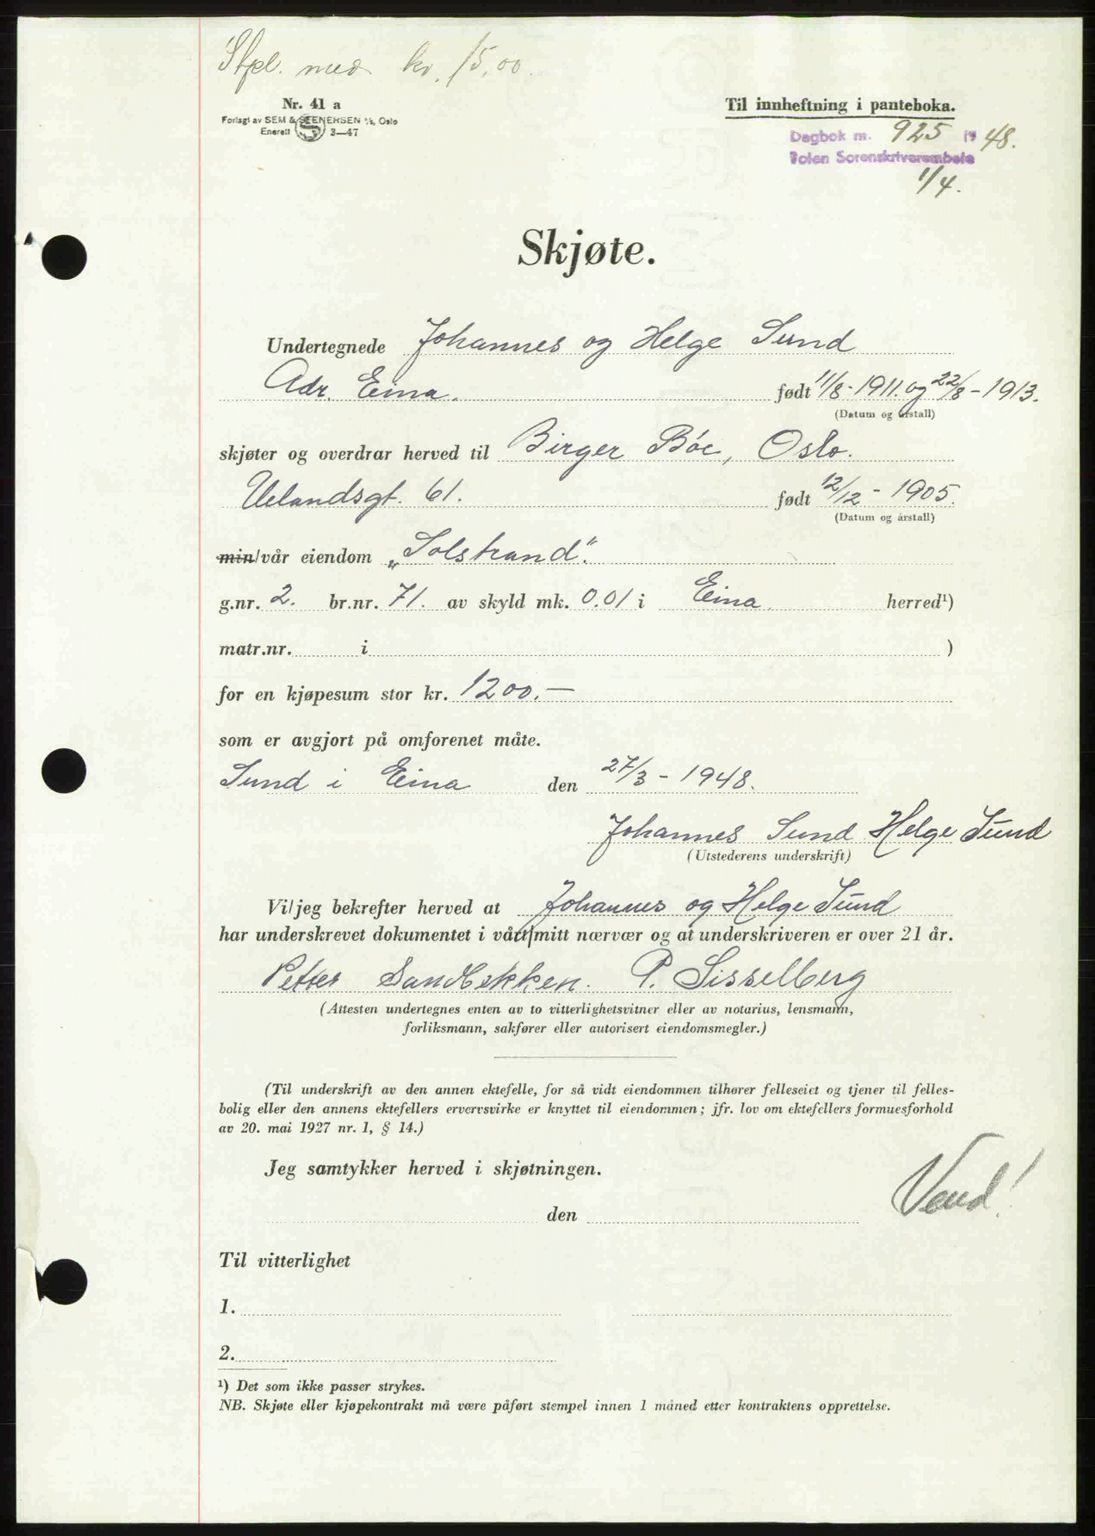 Stpl. med kr. 15,00.
Nr. 41 a
Forlagt av SEM & STENERSEN A/S, Oslo
Enerett 3—47
Til innheftning i panteboka.
Dagbok nr. 925 19 48.
Toten Sorenskriverembete
1/4.
Skjøte.
Undertegnede Johannes og Helge Sund
Adr. Eina. født 11/8-1911. og 22/8-1913.
(Datum og årstall)
skjøter og overdrar herved til Birger Bøe, Oslo.
Uelandsgt. 61. født 12/12-1905.
(Datum og årstall)
min/vår eiendom „Solstrand".
g.nr. 2. br.nr. 71. av skyld mk. 0.01 i Eina herred¹)
matr.nr. i )
for en kjøpesum stor kr. 1200.—
som er avgjort på omforenet måte.
Sund i Eina den 27/3-1948.
Johannes Sund Helge Sund
(Utstederens underskrift)
Vi/jeg bekrefter herved at Johannes og Helge Sund
har underskrevet dokumentet i vårt/mitt nærvær og at underskriveren er over 21 år.
Petter Sandbekken. P. Sisselberg
(Attesten undertegnes enten av to vitterlighetsvitner eller av notarius, lensmann,
forliksmann, sakfører eller autorisert eiendomsmegler.)
(Til underskrift av den annen ektefelle, for så vidt eiendommen tilhører felleseiet og tjener til felles-
bolig eller den annens ektefellers ervervsvirke er knyttet til eiendommen; jfr. lov om ektefellers formuesforhold
av 20. mai 1927 nr. 1, § 14.)
Jeg samtykker herved i skjøtningen.
Vend!
den
Til vitterlighet
1.
2.
¹) Det som ikke passer strykes.
NB. Skjøte eller kjøpekontrakt må være påført stempel innen 1 måned etter kontraktens opprettelse.